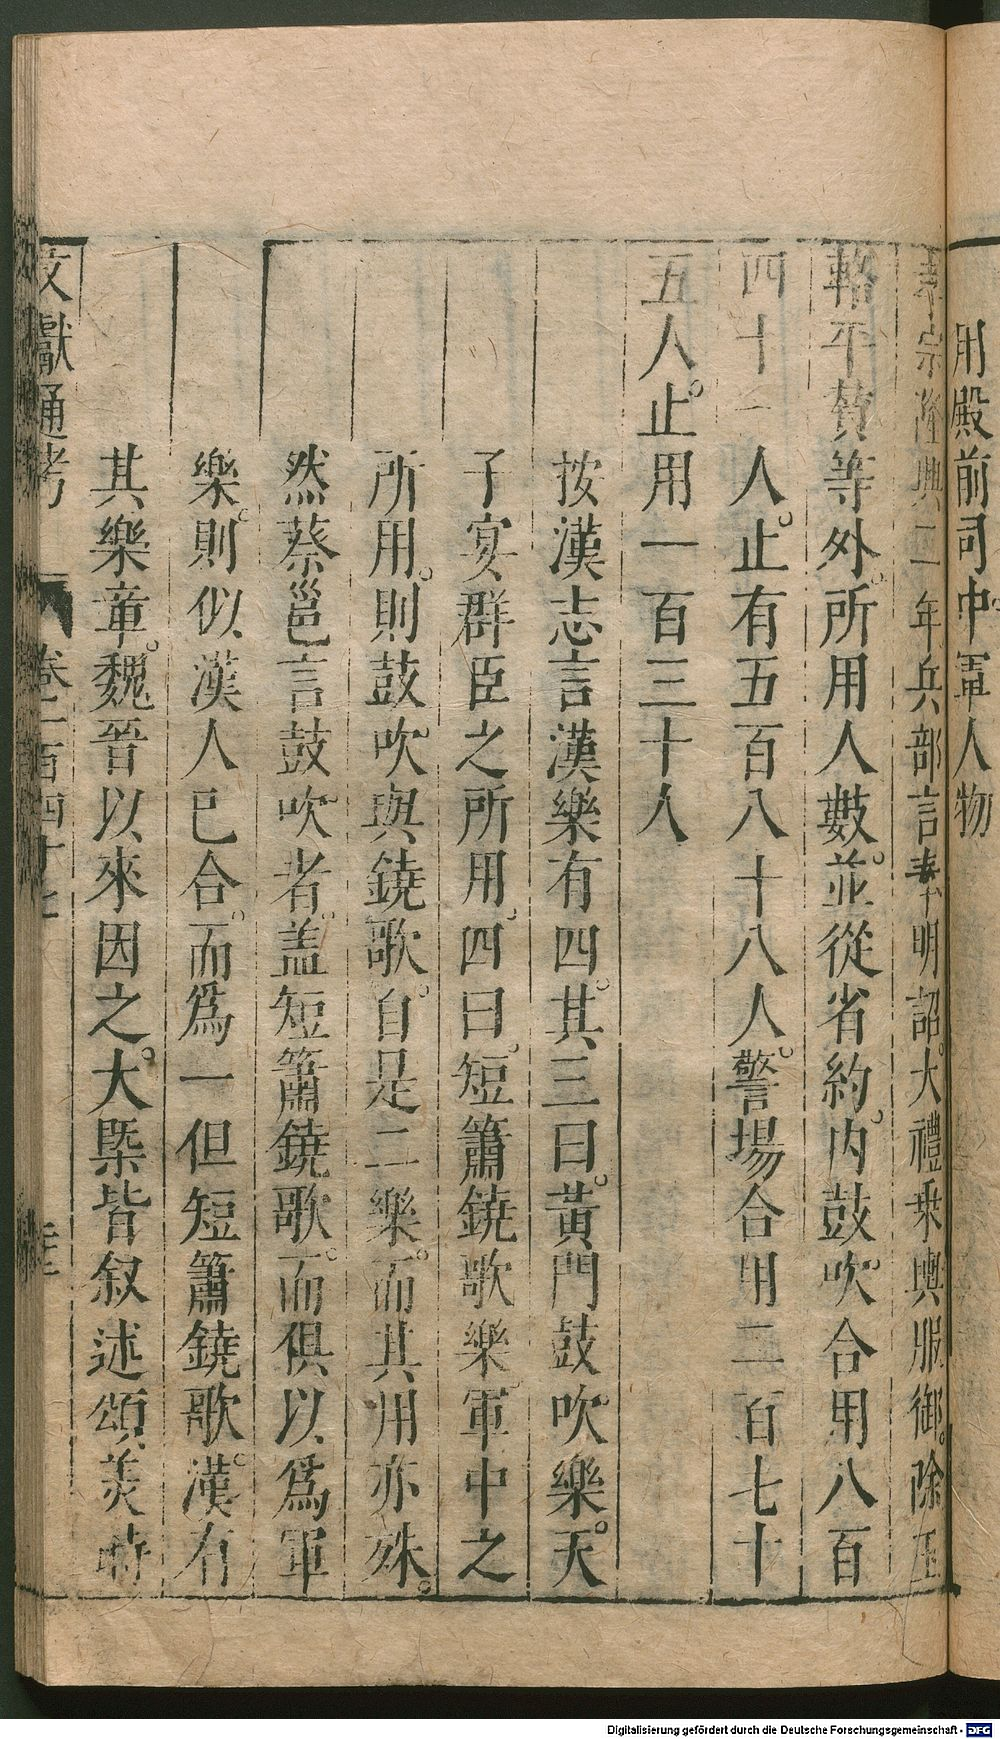 用殿前司中軍人物
孝宗隆興二年兵部言奉明詔。大禮乗輿服御。除玉
輅平輦等外。所用人數。並從省約。内鼓吹合用八百
四十一人。止有五百八十八人。警場合用二百七十
五人。止用一百三十人
按漢志言漢樂有四。其三曰。黄門鼓吹樂。天
子宴群臣之所用。四曰。短簫鐃歌樂。軍中之
所用。則鼓吹與鐃歌。自是二樂。而其用亦殊。
然蔡邕言鼓吹者。盖短簫鐃歌。而俱以爲軍
樂。則似漢人已合。而爲一但短簫鐃歌。漢有
其樂章。魏晉以來因之。大槩皆叙述頌美時
文獻通考 卷一百四十七
Digitalisierung gefördert durch die Deutsche Forschungsgemeinschaft - DFG